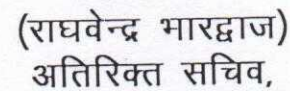 (राघवेन्द्र भारद्वाज)
अतिरिक्त सचिव,